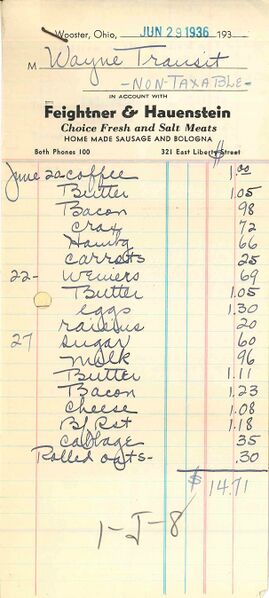 Wooster, Ohio, JUN 29 1936 193
M Wayne Transit
- NON-TAXABLE -
IN ACCOUNT WITH
Feightner & Hauenstein
Choice Fresh and Salt Meats
HOME MADE SAUSAGE AND BOLOGNA
Both Phones 100 321 East Liberty Street
June 20 coffee $1.00
Butter 1.05
Bacon 98
crax 72
Hambg 66
carrots 25
22- weniers 69
Butter 1.05
eggs 1.30
raisins 20
27 sugar 60
milk 96
Butter 1.11
Bacon 1.23
cheese 1.08
Bf Rst 1.18
cabbage 35
Rolled oats- .30
$ 14.71
1-J-8